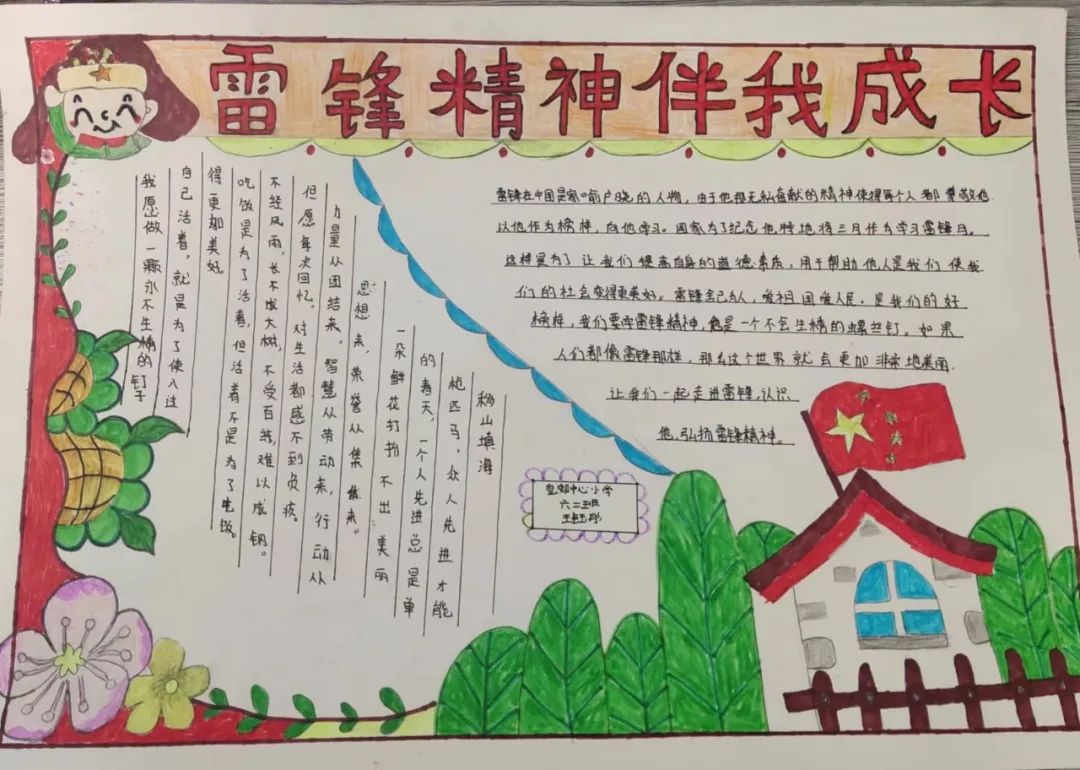 雷锋精神伴我成长
我愿做一颗永不生精的钉子
自己活着，就是为了使人过
得更加美好。
吃饭是为了活着，但活着不是为了吃饭。
不经风雨，长不成大树，不受百炼，难以成钢。
但愿每次回忆，对生活都感不到负疚。
力量从团结来，智慧从劳动来，行动从
思想来，荣誉从集体来。
一朵鲜花打扮不出美丽
的春天，一个人先进总是单
枪匹马，众人先进才能
移山填海
雷锋在中国是家喻户晓的人物，由于他报无私奋献的精神使得每个人都尊敬他
以他作为榜样，向他学习。国家为了纪念他特地将三月作为学习雷锋月。
这样是为了让我们提高自身的道德素质，用于帮助他人是我们使我
们的社会变得更美好。雷锋舍己为人，爱祖国爱人民，是我们的好
榜样，我们要学雷锋精神，他是一个不会生精的螺丝钉。如果
人们都像雷锋那样，那么这个世界就会更加非常地美丽.
让我们一起走进雷锋，认识
他，弘扬雷锋精神。
中心小学
六二班